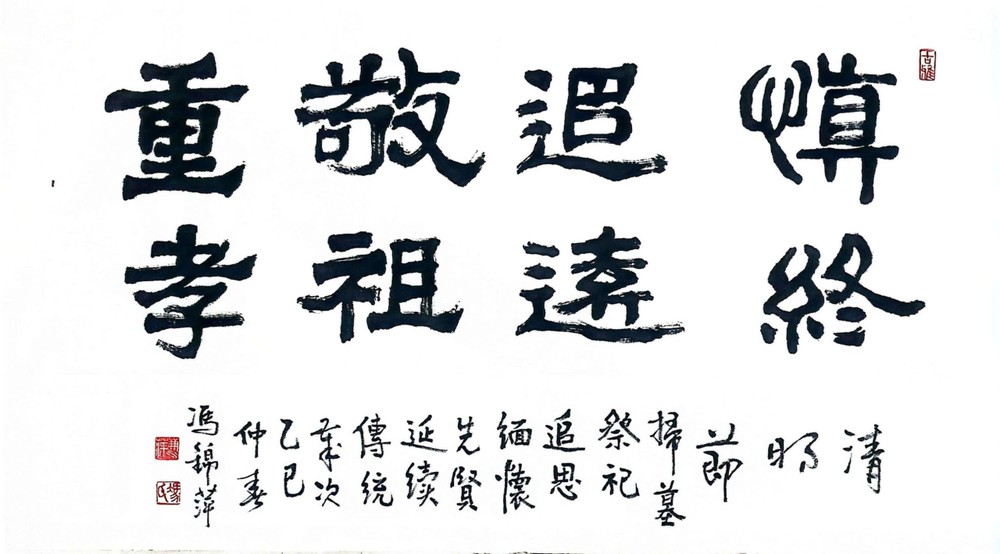 慎終
追遠
敬祖
重孝
清
明
節
掃墓
祭祀
追思
緬懷
先賢
延續
傳統
歲次
乙巳
仲春
馮錦萍